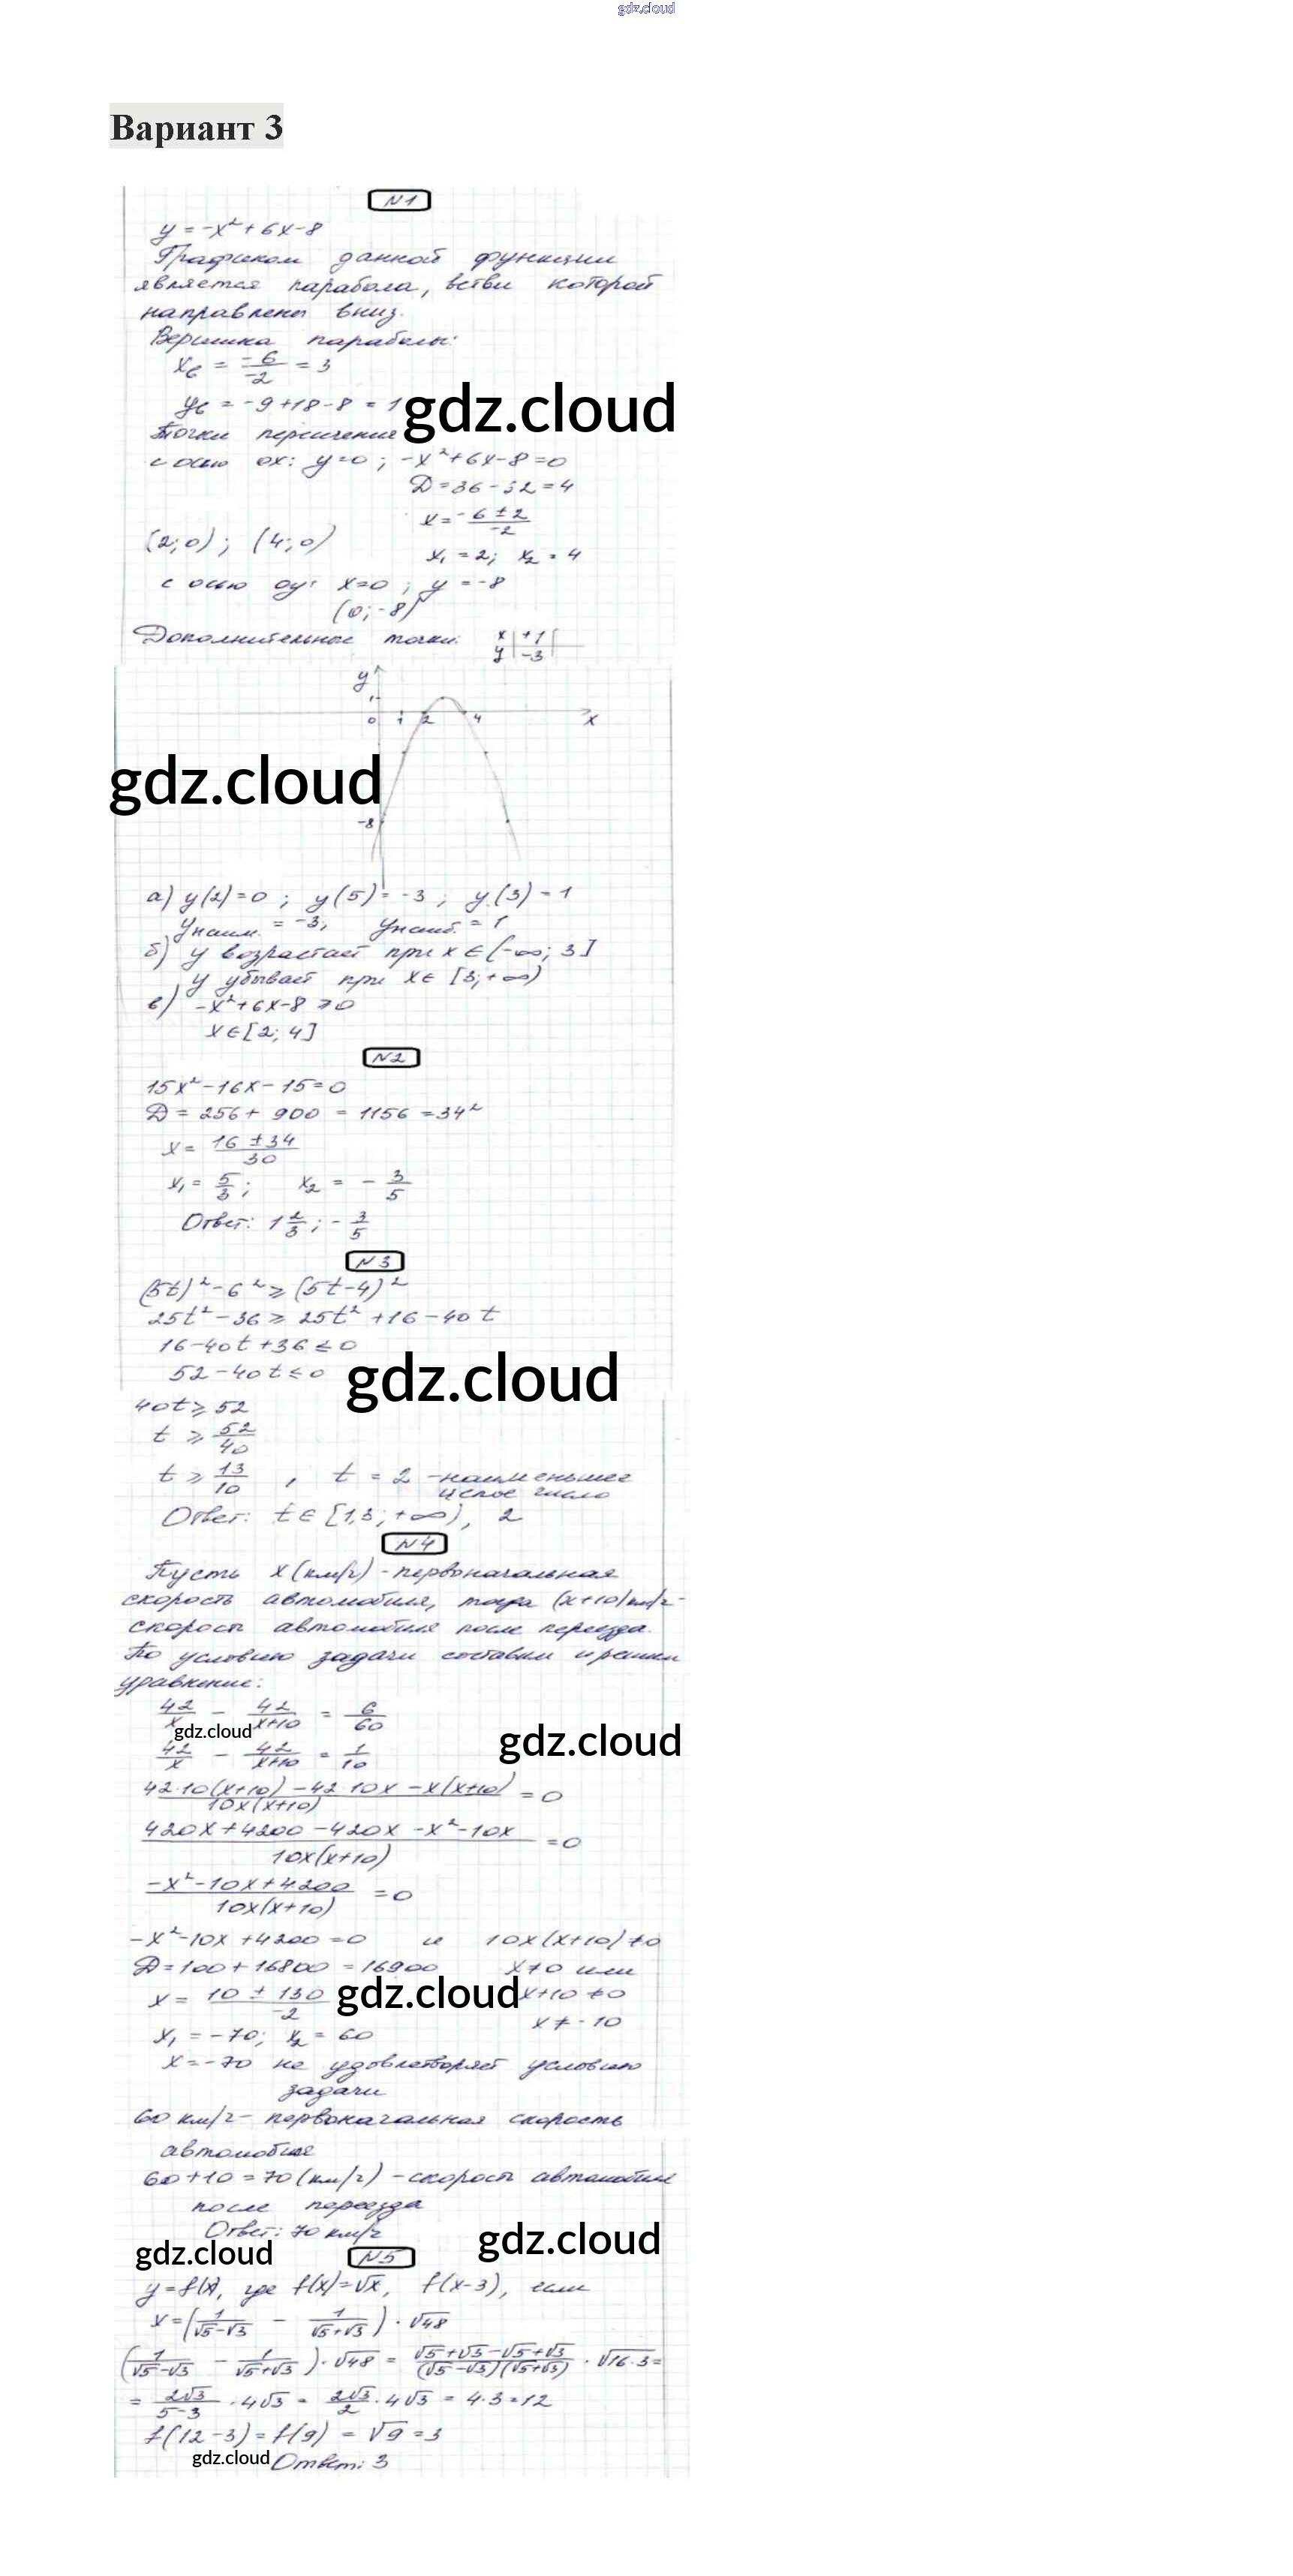 gdz.cloud
Вариант 3
N1
y = -x² + 6x - 8
Графиком данной функции
является парабола, ветви которой
направлены вниз.
Вершина параболы:
xв = -6/-2 = 3
yв = -9 + 18 - 8 = 1
gdz.cloud
Точки пересечения
с осью ox: y=0; -x²+6x-8=0
D = 36 - 32 = 4
x = -6 ± 2/-2
(2; 0); (4; 0)
x₁ = 2; x₂ = 4
с осью oy: x=0; y = -8
(0; -8)
Дополнительные точки: x | +1
y | -3
y
1
0 1 2 4 x
gdz.cloud
-8
а) y(2)=0; y(5) = -3; y(3) = 1
yнаим. = -3, yнаиб. = 1
б) y возрастает при x ∈ (-∞; 3]
y убывает при x ∈ [3; +∞)
в) -x²+6x-8 ≥ 0
x ∈ [2; 4]
N2
15x² - 16x - 15 = 0
D = 256 + 900 = 1156 = 34²
x = 16 ± 34/30
x₁ = 5/3; x₂ = -3/5
Ответ: 1 2/3; -3/5
N3
(5t)² - 6² ≥ (5t-4)²
25t² - 36 ≥ 25t² + 16 - 40t
16 - 40t + 36 ≤ 0
52 - 40t ≤ 0
gdz.cloud
40t ≥ 52
t ≥ 52/40
t ≥ 13/10, t = 2 - наименьшее
целое число
Ответ: t ∈ [1,3; +∞), 2
N4
Пусть x (км/ч) - первоначальная
скорость автомобиля, тогда (x+10) км/ч -
скорость автомобиля после переезда.
По условию задачи составим и решим
уравнение:
42/x - 42/x+10 = 6/60
gdz.cloud
gdz.cloud
42/x - 42/x+10 = 1/10
42·10(x+10) - 42·10x - x(x+10)/10x(x+10) = 0
420x + 4200 - 420x - x² - 10x/10x(x+10) = 0
-x² - 10x + 4200/10x(x+10) = 0
-x² - 10x + 4200 = 0 и 10x(x+10) ≠ 0
D = 100 + 16800 = 16900 x ≠ 0 или
x = 10 ± 130/-2 gdz.cloud x+10 ≠ 0
x ≠ -10
x₁ = -70; x₂ = 60
x = -70 не удовлетворяет условию
задачи
60 км/ч - первоначальная скорость
автомобиля
60 + 10 = 70 (км/ч) - скорость автомобиля
после переезда
Ответ: 70 км/ч
gdz.cloud
gdz.cloud
N5
y = f(x), где f(x) = √x, f(x-3), если
x = (1/√5-√3 - 1/√5+√3) · √48
(1/√5-√3 - 1/√5+√3) · √48 = √5+√3-√5+√3/(√5-√3)(√5+√3) · √16·3 =
= 2√3/5-3 · 4√3 = 2√3/2 · 4√3 = 4·3 = 12
f(12-3) = f(9) = √9 = 3
gdz.cloud
Ответ: 3